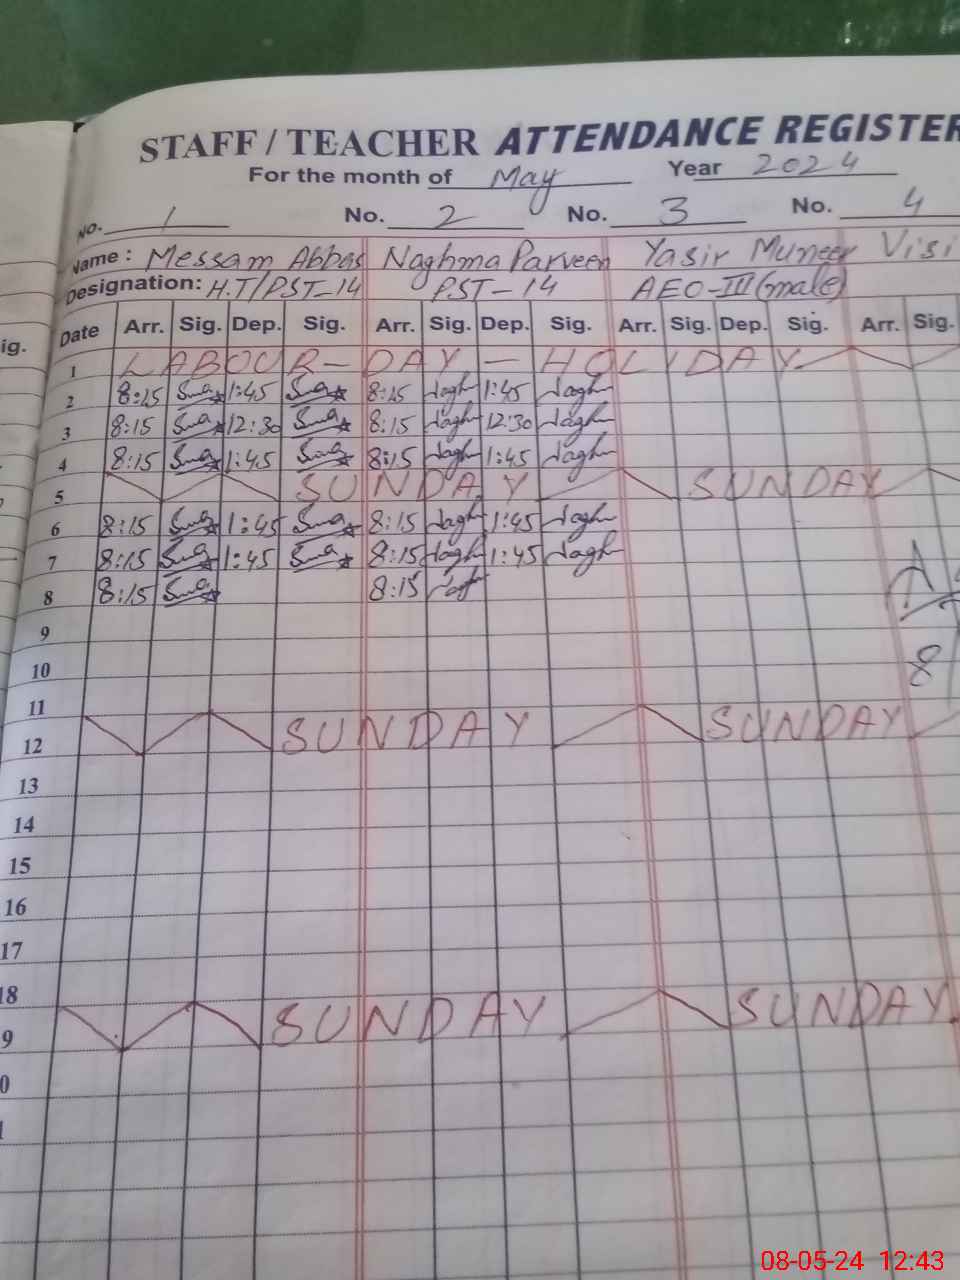 STAFF / TEACHER ATTENDANCE REGISTER
For the month of May Year 2024
No. 1 No. 2 No. 3 No. 4
Name : Messam Abbas Naghma Parveen Yasir Muneer Visi
Designation: H.T/PST-14 PST-14 AEO-III(male)
ig. Date Arr. Sig. Dep. Sig. Arr. Sig. Dep. Sig. Arr. Sig. Dep. Sig. Arr. Sig.
1 LABOUR-DAY-HOLIDAY
2 8:15 1:45 8:15 1:45
3 8:15 12:30 8:15 12:30
4 8:15 1:45 8:15 1:45
5 SUNDAY SUNDAY
6 8:15 1:45 8:15 1:45
7 8:15 1:45 8:15 1:45
8 8:15 8:15
9
10 8
11
12 SUNDAY SUNDAY
13
14
15
16
17
18
9 SUNDAY SUNDAY
0
1
08-05-24 12:43